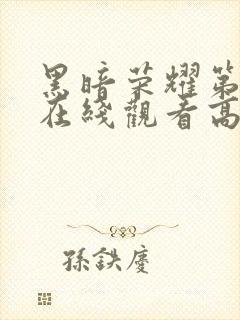 黑暗荣耀第
在綫觀看高
孫鉄慶